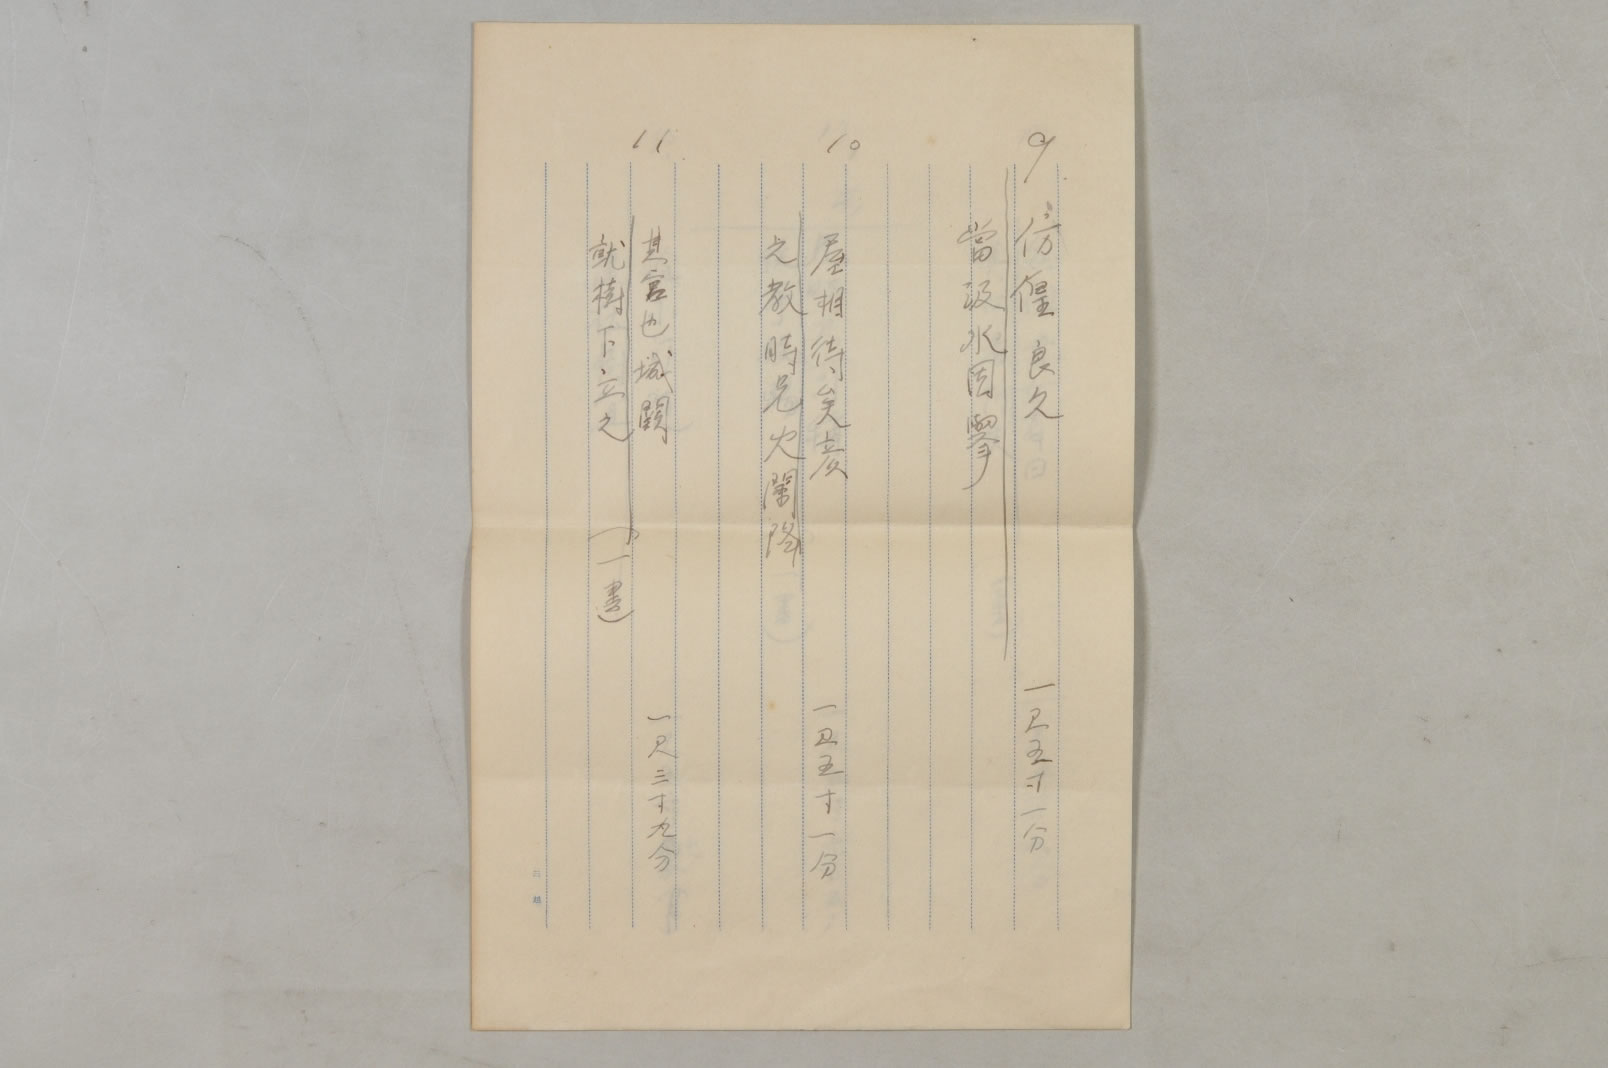 9
彷徨良久
當汲水因擧
一尺五寸一分
10
屋相待矣彦
之教時兄火闌降
一尺五寸一分
11
其宮也城闕
就樹下立之
(一書)
一尺三寸九分